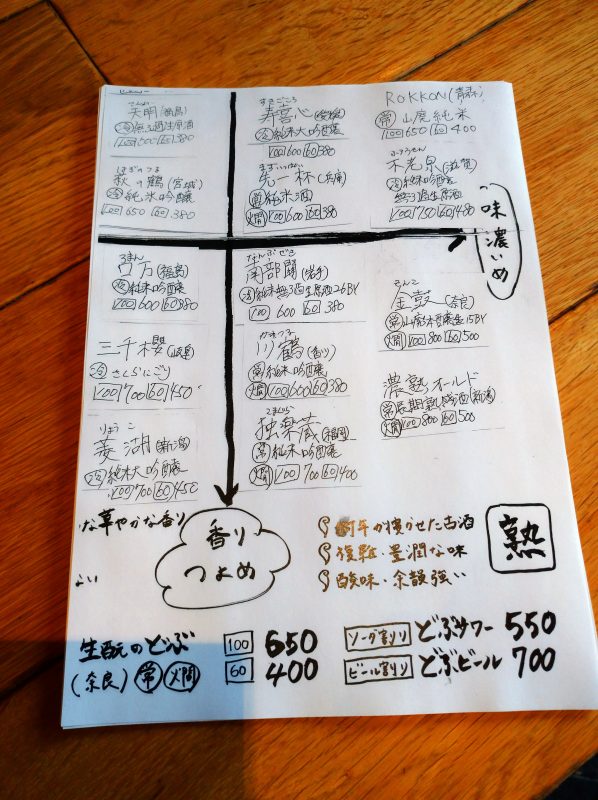 てんめい
天明(福島)
冷 無ろ過生原酒
100 500 60 380
はぎのつる
萩の鶴(宮城)
冷 純米吟醸
100 650 60 380
すきごころ
寿喜心(愛媛)
冷 純米大吟醸
100 600 60 380
まずいっぱい
先一杯(兵庫)
純米酒
燗 100 600 60 380
ROKKON(青森)
常 山廃純米
100 650 60 400
ふろうせん
不老泉(滋賀)
冷 純米吟醸
無ろ過生原酒
100 750 60 480
味濃いめ
ろまん
ロ万(福島)
冷 純米吟醸
100 600 60 380
三千櫻(岐阜)
冷 さくらにごり
100 700 60 450
りょうこ
菱湖(新潟)
冷 純米大吟醸
100 700 60 450
なんぶぜき
南部關(岩手)
冷 純米無ろ過生原酒26BY
100 600 60 380
かわつる
川鶴(香川)
常 純米吟醸
燗 100 600 60 380
こまぐら
独楽蔵(福岡)
常 純米吟醸
燗 100 700 60 400
金鼓(奈良)
常 山廃木桶醸造15BY
燗 100 800 60 500
濃熟オールド
常 長期熟吟酒(新潟)
燗 100 800 60 500
な華やかな香り
よい
香り
つよめ
年か寝かせた古酒
複雑・豊潤な味
酸味・余韻強い
熟
生酛のどぶ 100 650
(奈良) 常 燗 60 400
ソーダ割り どぶサワー 550
ビール割り どぶビール 700